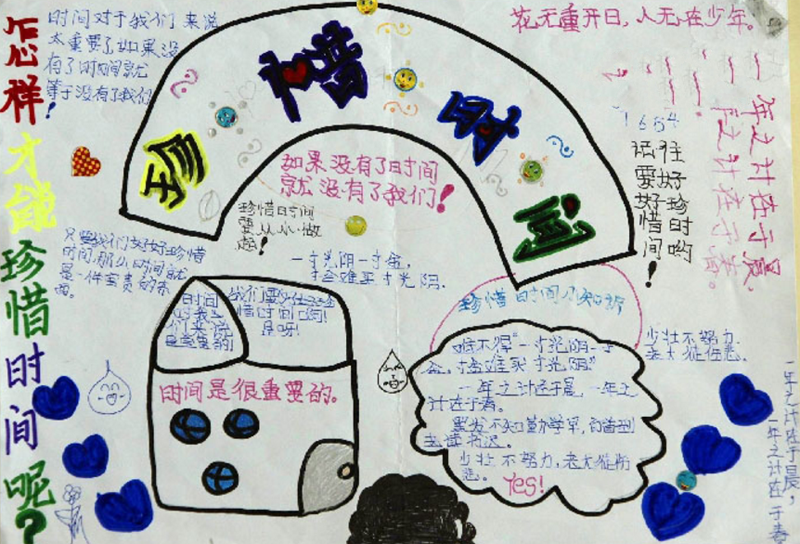 怎样才能珍惜时间呢?
时间对于我们来说
太重要了如果没
有了时间就
等于没有了我们!
珍惜时间
花无重开日,人无在少年。
一年之计在于春。
一日之计在于晨
1684
往
好珍时哟
记要好惜间!
如果没有了时间
就没有了我们!
珍惜时间
要从小做
起!
一寸光阴一寸金,
寸金难买寸光阴.
只要我们好好珍惜
时间,那么时间就
是一件宝贵的东
西。
时间
对我
们来说
是宝贵的
我们要好好珍
惜时间哟!
是呀!
时间是很重要的。
珍惜时间小知识
难不得"一寸光阴一寸
金,寸金难买寸光阴"
一年之计在于晨,一年之
计在于春。
黑发不知勤学早,白首方
悔读书迟。
少壮不努力,老大徒伤
悲。
Yes!
少壮不努力,
老大徒伤悲。
一年之计在于晨,
一年之计在于春